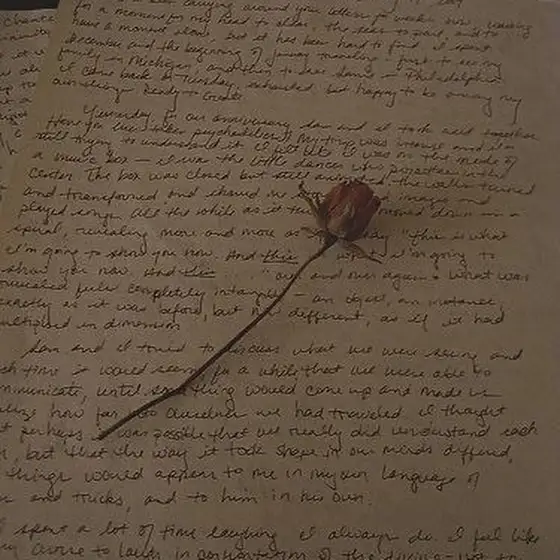 been carrying around your letters for weeks now, waiting
for a moment for my head to clear, the seas to part, and to
have a moment alone, but it has been hard to find. I spent
december and the beginning of january traveling - first to see my
family in Michigan, and then to see dans - Philadelphia.
I came back on Tuesday, exhausted, but happy to be among my
own things. Ready to create.
Yesterday for our anniversary dan and I took acid together.
Have you ever taken psychedelics? My trip was intense and I'm
still trying to understand it. I felt like I was on the inside of
a music box - I was the little dancer who in the
center. The box was closed but still the walls turned
and transformed and showed me images and
played songs. All the while as it moved down in a
spiral, revealing more and more as "this is what
I'm going to show you now. And this is what I'm going to
show you now. And this ..." over and over again. What was
revealed felt completely intangible - an object, an instance,
exactly as it was before, but different, as if it had
multiplied in dimension.
dan and I tried to discuss what we were seeing and
each time it would seem for a while that we were able to
communicate, until something would come up and made us
realize how far into ourselves we had traveled. I thought
that perhaps it was possible that we really did understand each
other, but that the way it took shape in our minds differed,
things would appear to me in my own language of
and tricks, and to him in his own.
I spent a lot of time laughing. I always do. I feel like
to laugh in